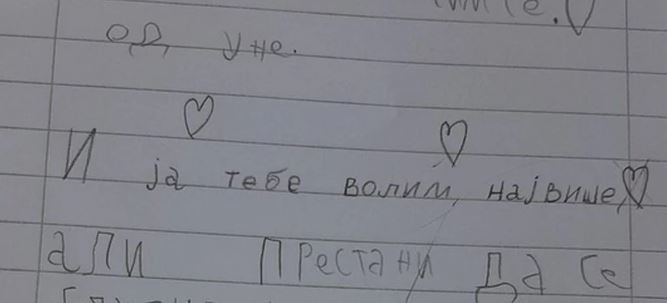 од уне.
И ја тебе волим, највише,
али престани да се